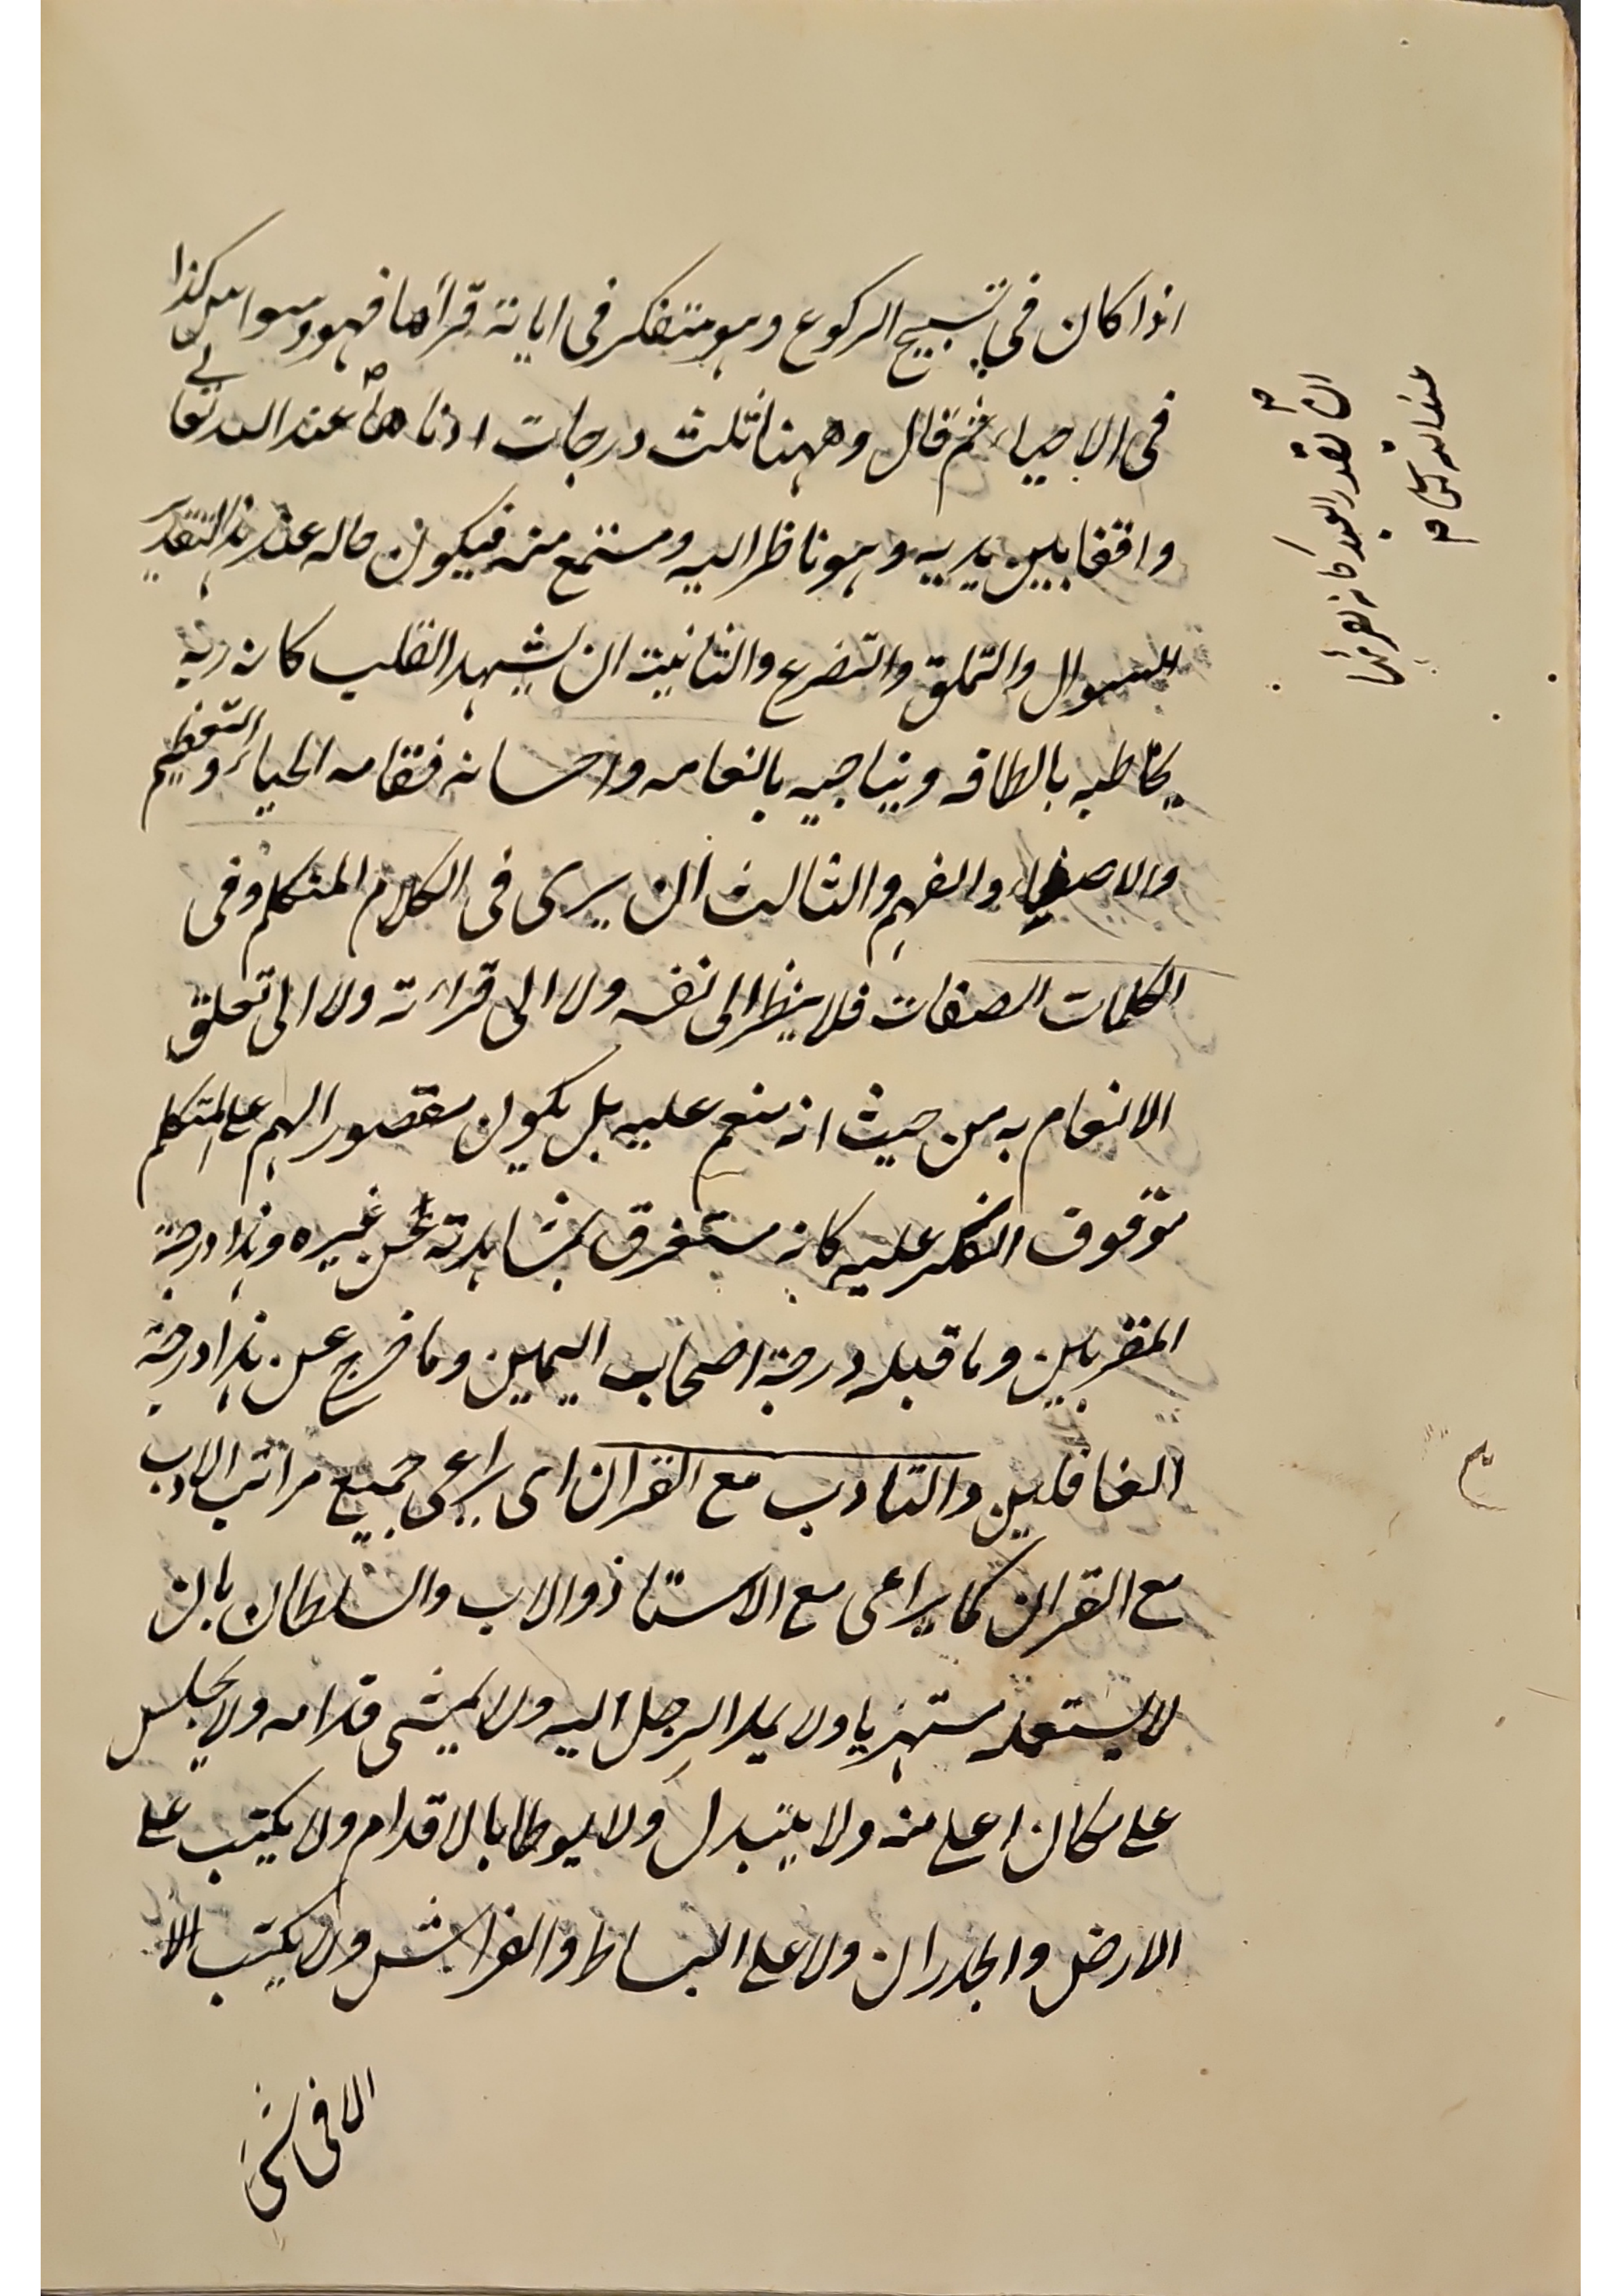 اذا كان فى تسبيح الركوع وهو متفكر فى اية قرأها فهو وسواس كذا
فى الاحياء ثم قال وههنا ثلث درجات ادناها عند الله تعالى
واقفا بين يديه وهو ناظر اليه ومستمع منه فيكون حاله عند هذا التقدير
السوال والتملق والتضرع والثانية ان يشهد القلب كانه ربه
يخاطبه بالطافه ويناجيه بانعامه واحسانه فمقامه الحياء والتعظيم
والاصغاء والفهم والثالث ان يرى فى الكلام المتكلم وفى
الكلمات الصفات فلا ينظر الى نفسه ولا الى قرائته ولا الى تعلق
الانعام به من حيث انه منعم عليه بل يكون مقصور الهم على المتكلم
موقوف الفكر عليه كانه مستغرق بمشاهدته عن غيره وهذا درجة
المقربين وما قبله درجة اصحاب اليمين وما خرج عن هذا درجة
الغافلين والتادب مع القران اى يراعى جميع مراتب الادب
مع القران كما يراعى مع الاستاذ والاب والسلطان بان
لا يستعمله مستهزيا ولا يمد الرجل اليه ولا يمشى قدامه ولا يجلس
على مكان اعلى منه ولا يتبدل ولا يوطا بالاقدام ولا يكتب على
الارض والجدران ولا على البساط والفراش ولا يكتب الا
الا فى شئ
ان يقدر العبد كانه يقرئها